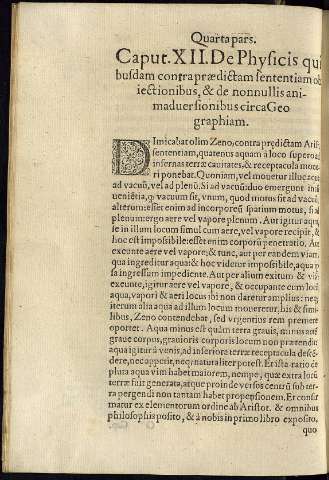 Quarta pars.
Caput. XII. De Physicis qui
busdam contra prædictam sententiam ob
iectionibus, & de nonnullis ani-
maduersionibus circa Geo
graphiam.
Dimicabat olim Zeno, contra prędictam Arist.
sententiam, quatenus aquam a loco supero ad
infernas terræ cauitates, & receptacula moue-
ri ponebat. Quoniam, vel mouetur illuc aqua
ad vacuũ, vel ad plenũ. Si ad vacuũ: duo emergunt in
ueniẽtia, vacuum sit, vnum, quod motus sit ad vacuũ,
alterum: esset enim ad incorporeũ spatium motus, si ad
plenum: ergo aere vel vapore plenum. Aut igitur aqua,
te in illum locum simul cum aere, vel vapore recipit, &
hoc est impossibile: esset enim corporũ penetratio. Aut
exeunte aere vel vapore; & tunc, aut per eandem viam
qua ingreditur aqua: & hoc videtur impossibile, aqua ip
sa ingressum impediente. Aut per alium exitum &
exeunte, igitur aere vel vapore, & occupante eum loci
aqua, vapori & aeri locus ibi non daretur amplius: neq
iterum alia aqua ad illum locum moueretur, his & simi
libus, Zeno contendebat, sed vrgentius rem premere
oportet. Aqua minus est quàm terra grauis, minus autẽ
graue corpus, grauioris corporis locum non prætendit
aqua igitũr à venis, ad inferiora terræ receptacula descẽ
dere, nec apperit, neq; naturaliter potest. Er ista ratio cõ
plura aqua vim habet maiorem, nempe, quæ extra locũ
terræ fuit generata, atque proin de versos centrũ sub ter-
ra pergendi non tantam habet propensionem. Et confir
matur ex elementorum ordine ab Aristot. & omnibus
philosophis posito, & à nobis in primo libro exposito,
quo